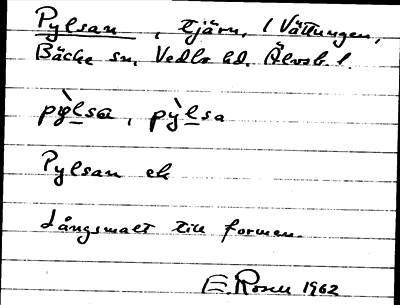 Pylsan, tjärn, i Vättungen,
Bäcke sn, Vedbo hd. Älvsb. l.
pỳlsa, pỳlsa
Pylsan ek
Långsmalt till formen.
E. Rosell 1962